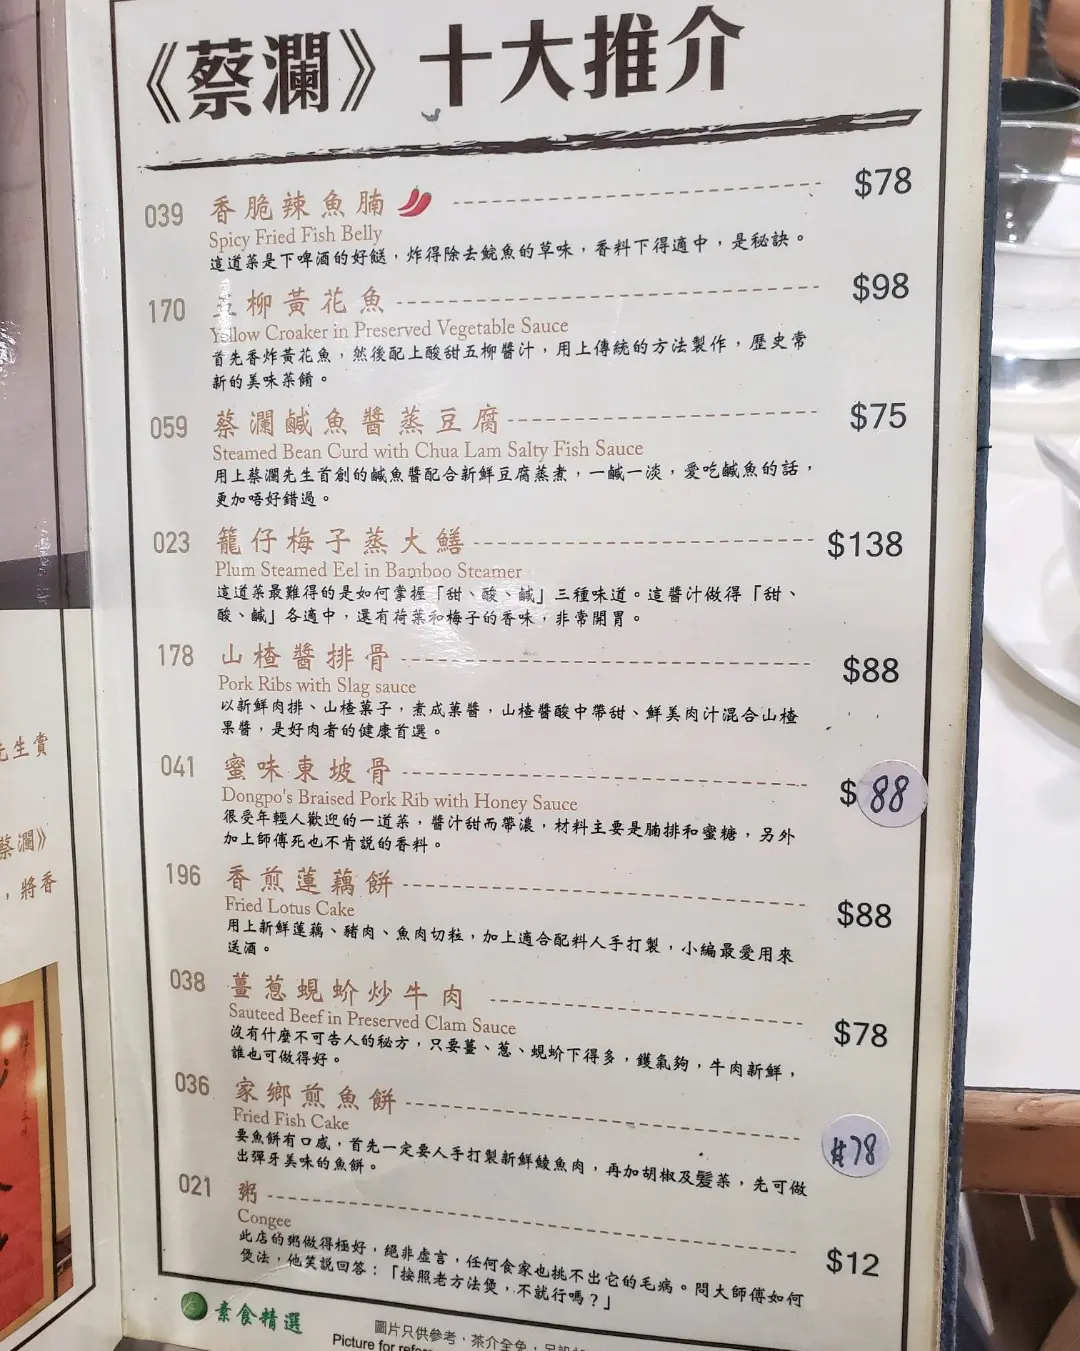 《蔡瀾》十大推介
039 香脆辣魚腩 $78
Spicy Fried Fish Belly
這道菜是下啤酒的好餸，炸得除去鯇魚的草味，香料下得適中，是秘訣。
170 五柳黃花魚 $98
Yellow Croaker in Preserved Vegetable Sauce
首先香炸黃花魚，然後配上酸甜五柳醬汁，用上傳統的方法製作，歷史常
新的美味菜餚。
059 蔡瀾鹹魚醬蒸豆腐 $75
Steamed Bean Curd with Chua Lam Salty Fish Sauce
用上蔡瀾先生首創的鹹魚醬配合新鮮豆腐蒸煮，一鹹一淡，愛吃鹹魚的話，
更加唔好錯過。
023 籠仔梅子蒸大鱔 $138
Plum Steamed Eel in Bamboo Steamer
這道菜最難得的是如何掌握「甜、酸、鹹」三種味道。這醬汁做得「甜、
酸、鹹」各適中，還有荷葉和梅子的香味，非常開胃。
178 山楂醬排骨 $88
Pork Ribs with Slag sauce
以新鮮肉排、山楂菓子，煮成菓醬，山楂醬酸中帶甜、鮮美肉汁混合山楂
果醬，是好肉者的健康首選。
041 蜜味東坡骨 $88
Dongpo's Braised Pork Rib with Honey Sauce
很受年輕人歡迎的一道菜，醬汁甜而帶濃，材料主要是腩排和蜜糖，另外
加上師傅死也不肯説的香料。
196 香煎蓮藕餅 $88
Fried Lotus Cake
用上新鮮蓮藕、豬肉、魚肉切粒，加上適合配料人手打製，小編最愛用來
送酒。
038 薑蔥蜆蚧炒牛肉 $78
Sauteed Beef in Preserved Clam Sauce
沒有什麼不可告人的秘方，只要薑、蔥、蜆蚧下得多，鑊氣夠，牛肉新鮮，
誰也可做得好。
036 家鄉煎魚餅 $78
Fried Fish Cake
要魚餅有口感，首先一定要人手打製新鮮鯪魚肉，再加胡椒及髮菜，先可做
出彈牙美味的魚餅。
021 粥 $12
Congee
此店的粥做得極好，絕非虛言，任何食家也挑不出它的毛病。問大師傅如何
煲法，他笑説回答：「按照老方法煲，不就行嗎？」
素食精選
圖片只供參考，茶介全免，另設
Picture for refer
先生賞
蔡瀾》
，將香